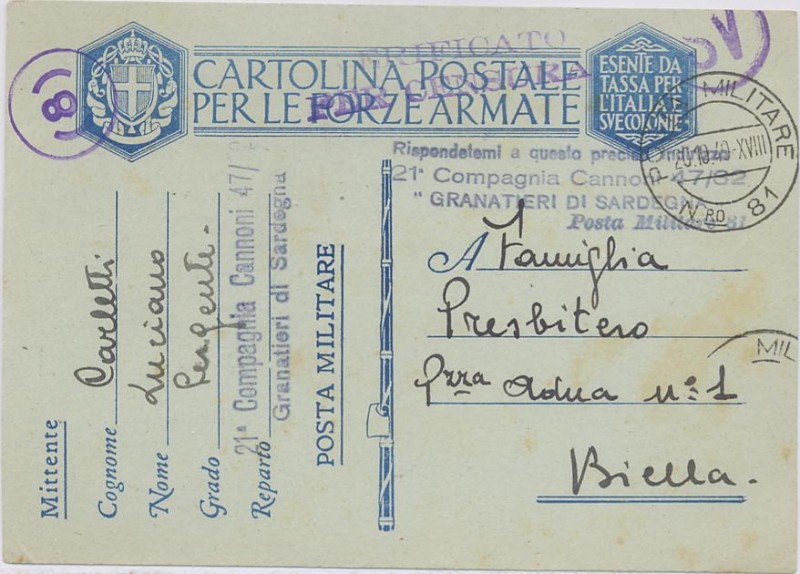 8
VERIFICATO
PER CENSURA
CARTOLINA POSTALE
PER LE FORZE ARMATE
ESENTE DA
TASSA PER
L'ITALIA E
SVE COLONIE
POSTA MILITARE
20.10.40-XVIII
N.RO 81
Rispondetemi a questo preciso indirizzo
21ª Compagnia Cannoni 47/32
"GRANATIERI DI SARDEGNA
Posta Militare 81
A Famiglia
Presbitero
Pzza Adua n° 1
Biella.
MIL
POSTA MILITARE
Mittente
Cognome Carletti
Nome Luciano
Grado Sergente -
Reparto
21ª Compagnia Cannoni 47/
Granatieri di Sardegna